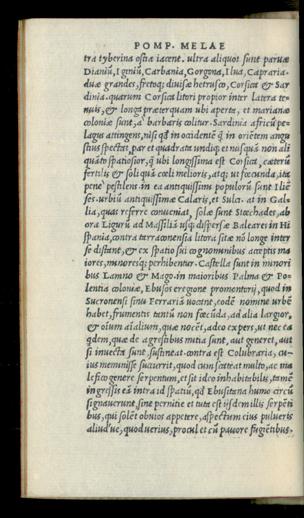 POMP. MELAE
tra tyberina ostia iacent. ultra aliquot sunt paruæ
Dianiũ, Iginiũ, Carbania, Gorgona, Ilua, Capraria.
duæ grandes, fretoq; diuisæ hetrusco, Corsica & Sar
dinia. quarum Corsica litori propior inter latera te-
nuis, & longa præterquam ubi aperta, et mariana
coloniæ sunt, à barbaris colitur. Sardinia africũ pe-
lagus attingens, nisi qd in occidentẽ q̃ in oriẽtem angu
stius spectat, par et quadrata undiq; et nusquã non ali
quãto spatiosior, q̃ ubi longissima est Corsica, cæterũ
fertilis & soli quã cœli melioris, atq; ut fœcunda, ita
penè pestilens. in ea antiquissimi populorũ sunt Iliẽ
ses. urbiũ antiquissimæ Calaris, et Sulca. at in Gal-
lia, quas referre conueniat, solæ sunt Stœchades, ab
ora Ligurũ ad Massiliã usq; dispersæ. Baleares in Hi
spania, contra tarraconensia litora sitæ nõ longe inter
se distant, & ex spatio sui cognominibus acceptis ma
iores, minoresq; perhibentur. Castella sunt in minori
bus Lamno & Mago. in maioribus Palma & Po-
lentia coloniæ, Ebusos eregione promontorij, quod in
Sucronensi sinu Ferrariã uocãt, eodẽ nomine urbẽ
habet, frumentis tentũ non fœcũda, ad alia largior,
& oium aialium, quæ nocẽt, adeo expers, ut nec ea
qdem, quæ de agrestibus mitia sunt, aut generet, aut
si inuecta sunt, sustineat. contra est Colubraria, cu-
ius meminisse succurrit, quod cum scateat multo, ac ma
lefico genere serpentum, et sit ideo inhabitabilis, tamẽ
ingressis eã intra id spatiũ, qd Ebusitana humo circũ
signauerunt, sine pernitie et tuta est ijsdem illis serpẽti
bus, qui solẽt obuios appetere, aspectum eius pulueris
aliud ue, quod uerius, procul et cũ pauore fugiẽtibus.